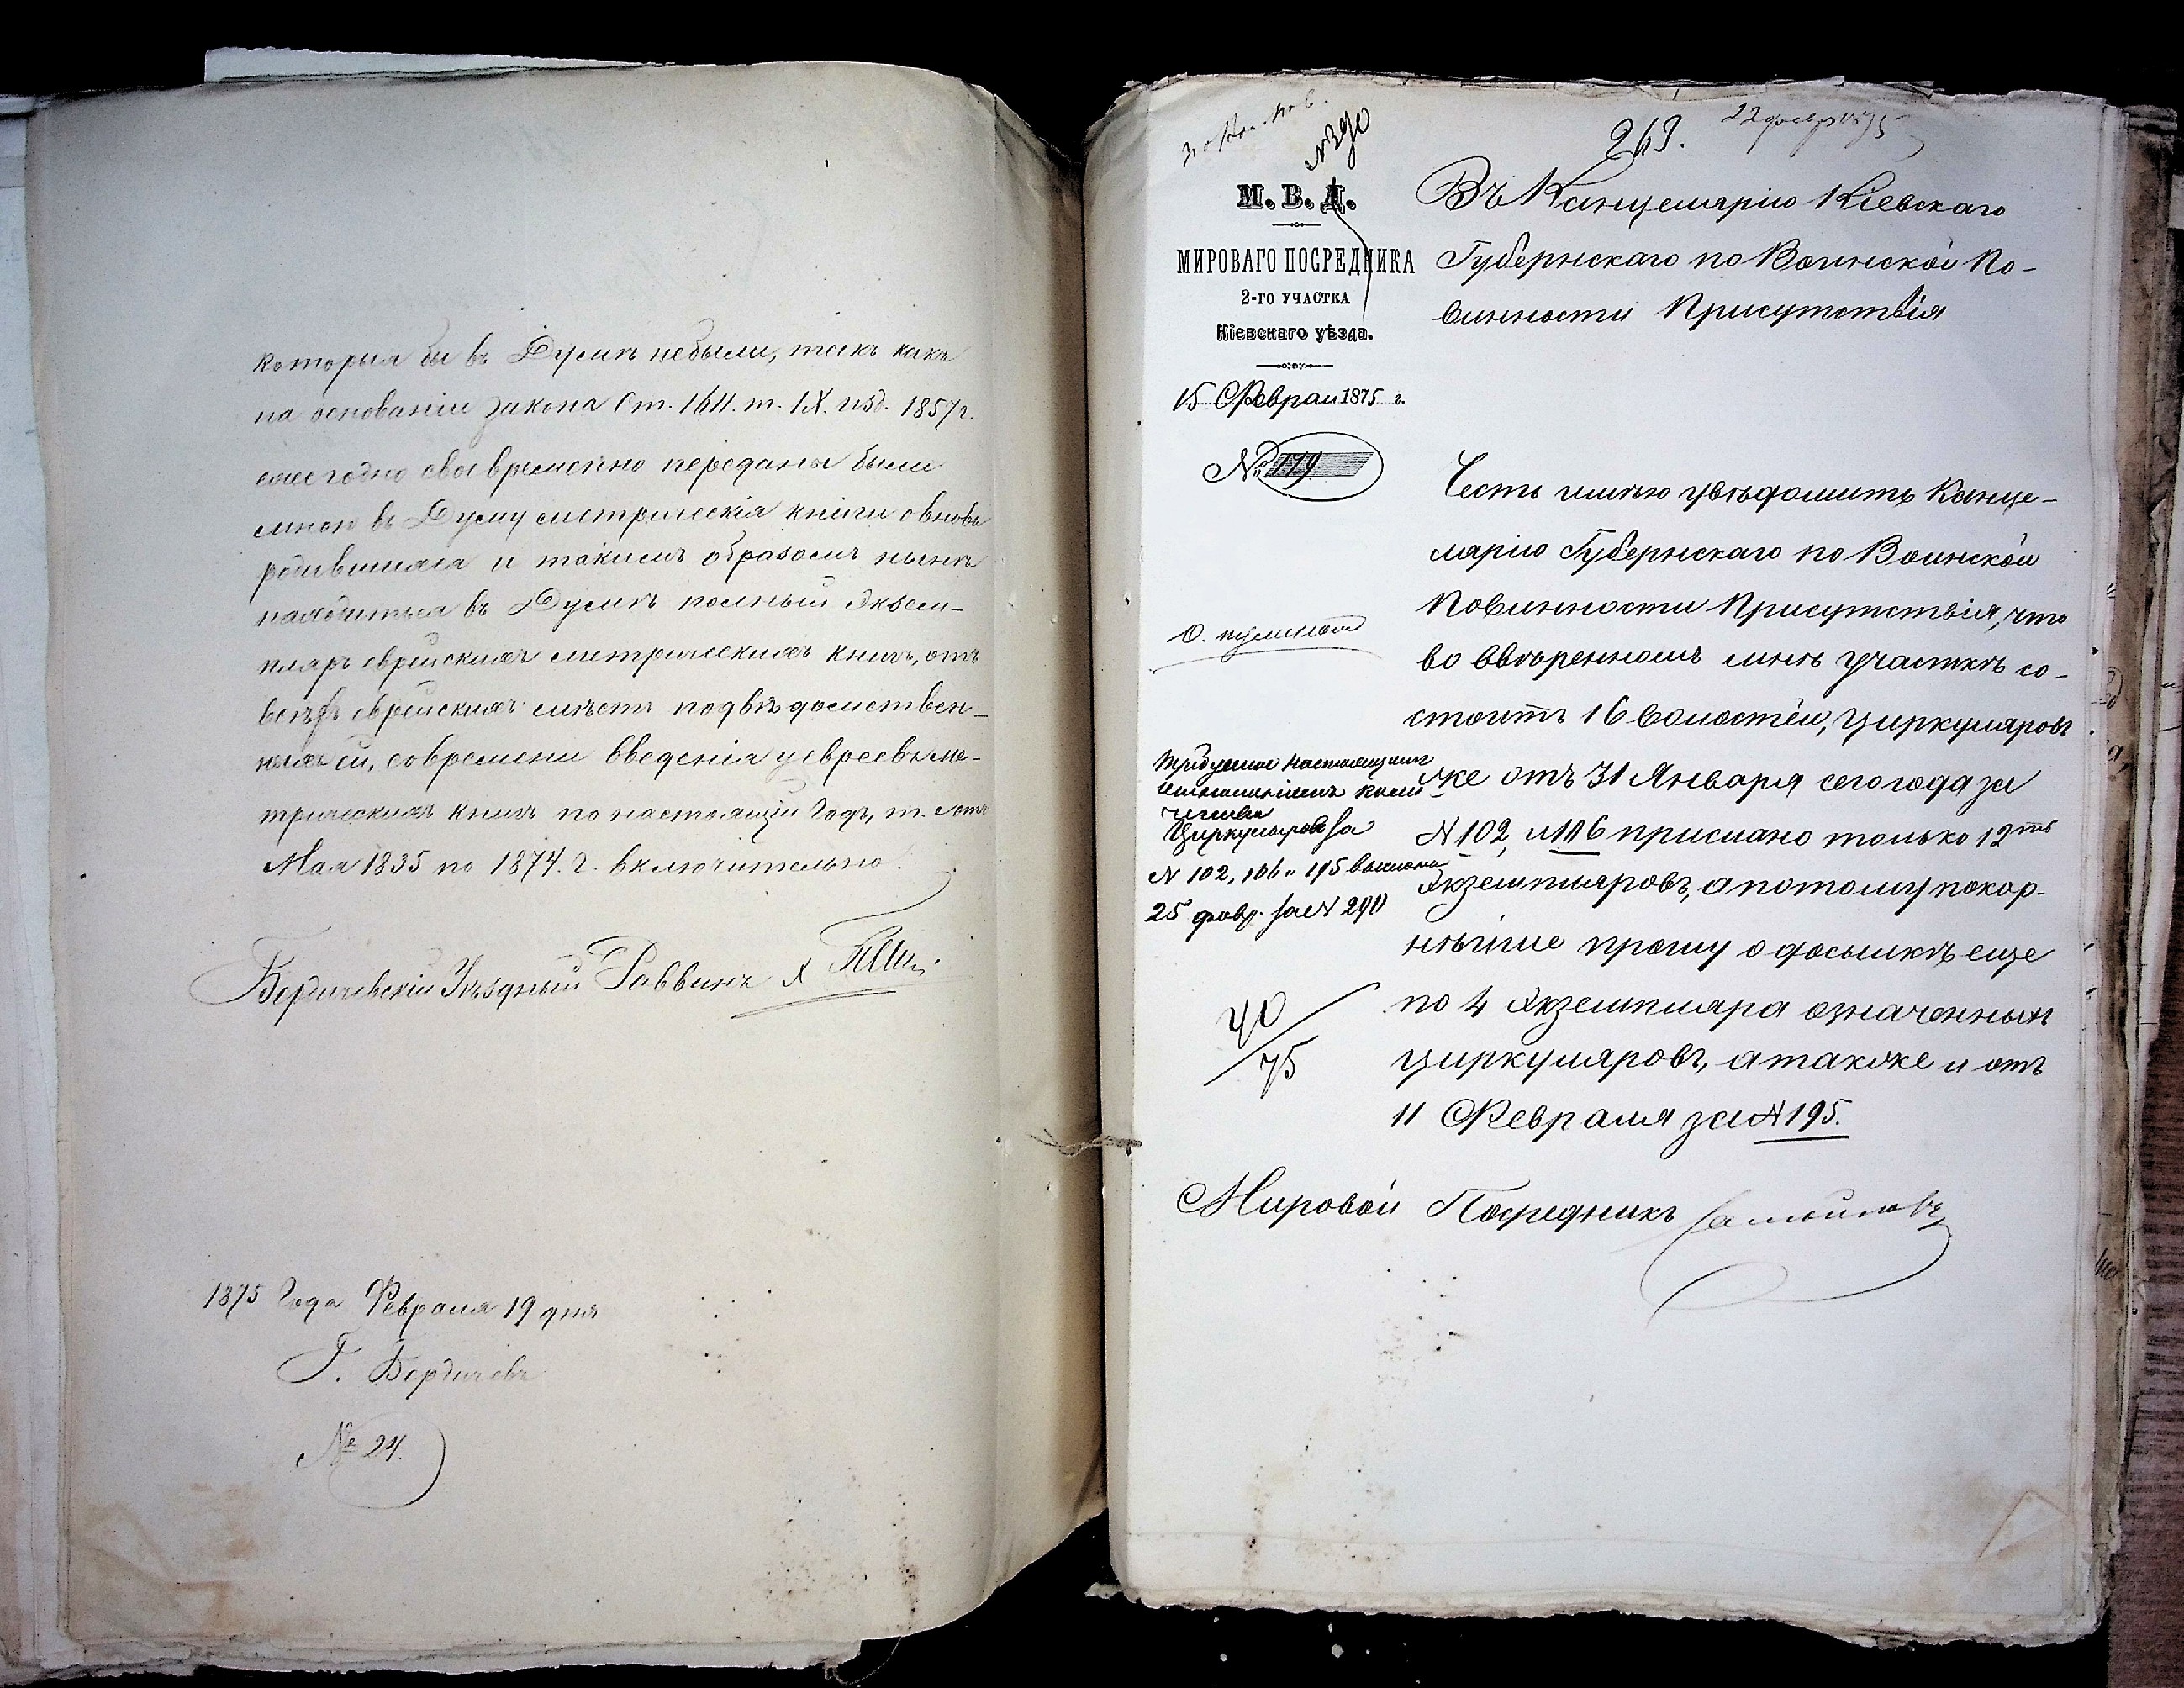 которыя бы въ Думѣ небыли, такъ какъ
на основаніи закона Ст. 1611. т. IX. изд. 1857 г.
ежегодно своевременно переданы были
мною въ Думу метрическія книги о вновь
родившихся и такимъ образомъ нынѣ
находиться въ Думѣ полный экзем-
пляръ еврейскихъ метрическихъ книгъ, отъ
всѣхъ еврейскихъ мѣстъ подвѣдомствен-
ныхъ ей, современи введенія уевреевъ ме-
трическихъ книгъ по настоящій годъ, т. е. отъ
Мая 1835 по 1874. г. включительно.
Бердичевскій Уѣздный Раввинъ
1875 Года Февраля 19 дня
Г. Бердичевъ
№ 24.
№ 390
269.
22 февр 1875
М. В. Д.
МИРОВАГО ПОСРЕДНИКА
2-ГО УЧАСТКА
Кіевскаго уѣзда.
15 Феврал 1875 г.
№ 179
Въ Канцелярію Кіевскаго
Губернскаго по Воинской По-
винности Присутствія
Честь имѣю увѣдомить Канце-
лярію Губернскаго по Воинской
Повинности Присутствія, что
во ввѣренномъ мнѣ участкѣ со-
стоитъ 16 волостей, циркуляровъ
же отъ 31 Января сего года за
№ 102, и 106 прислано только 12ть
экземпляровъ, а потому покор-
нѣйше прошу о досылкѣ еще
по 4 экземпляра означенныхъ
циркуляровъ, а также и отъ
11 Февраля за № 195.
Требуемое настоящимъ
отношеніемъ коли-
чество
Циркуляровъ за
№ 102, 106 и 195 выслано
25 февр. за № 290
40/75
Мировой Посредникъ